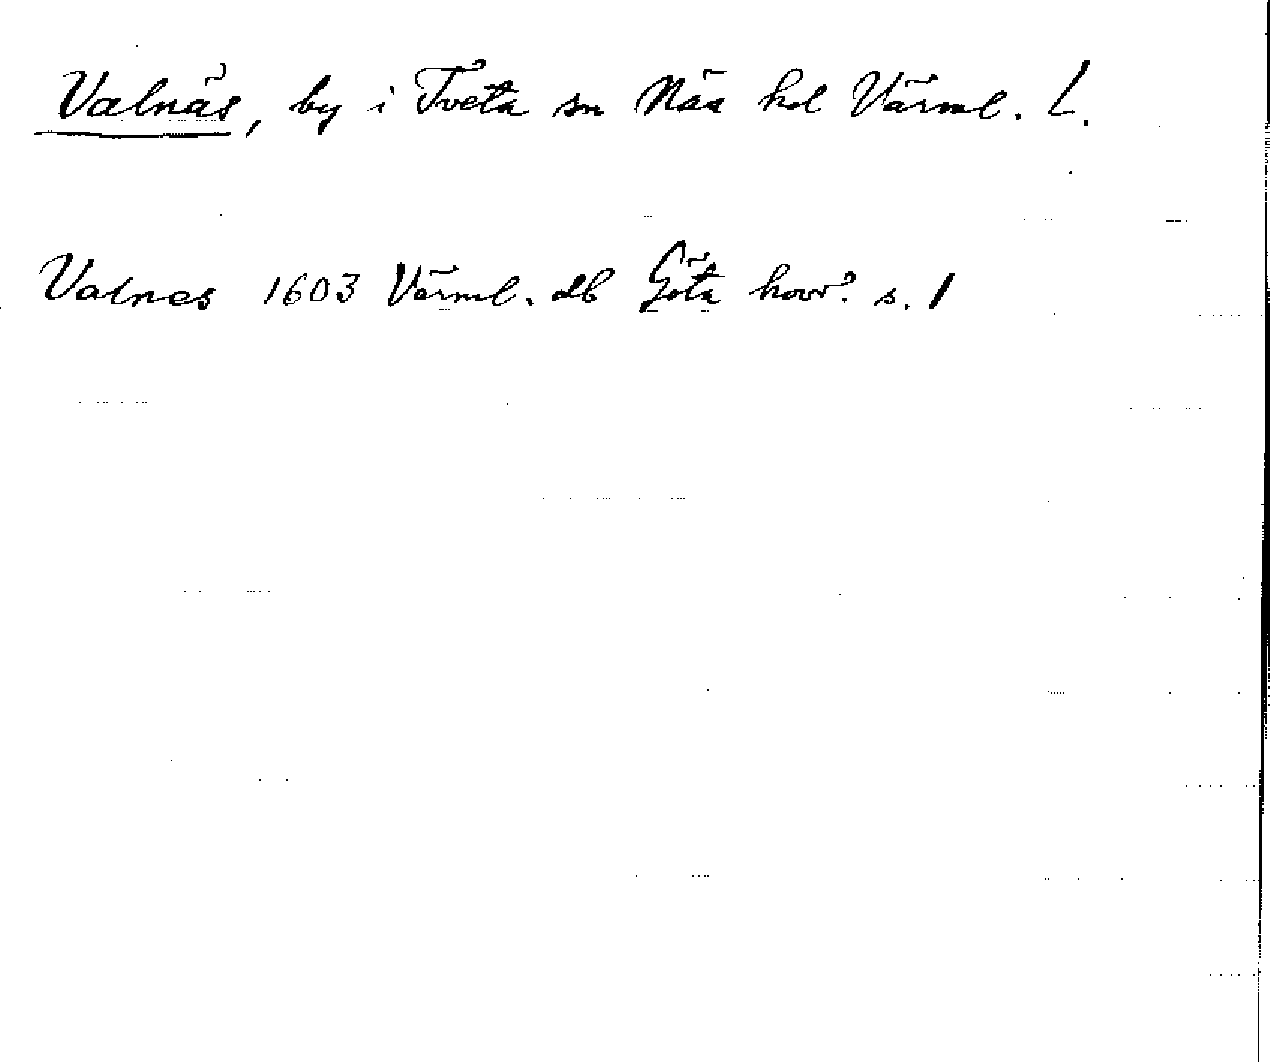 Valnäs, by i Tveta sn Näs hd Värml. L.
Valnes 1603 Värml. db Göta hovr. s. 1